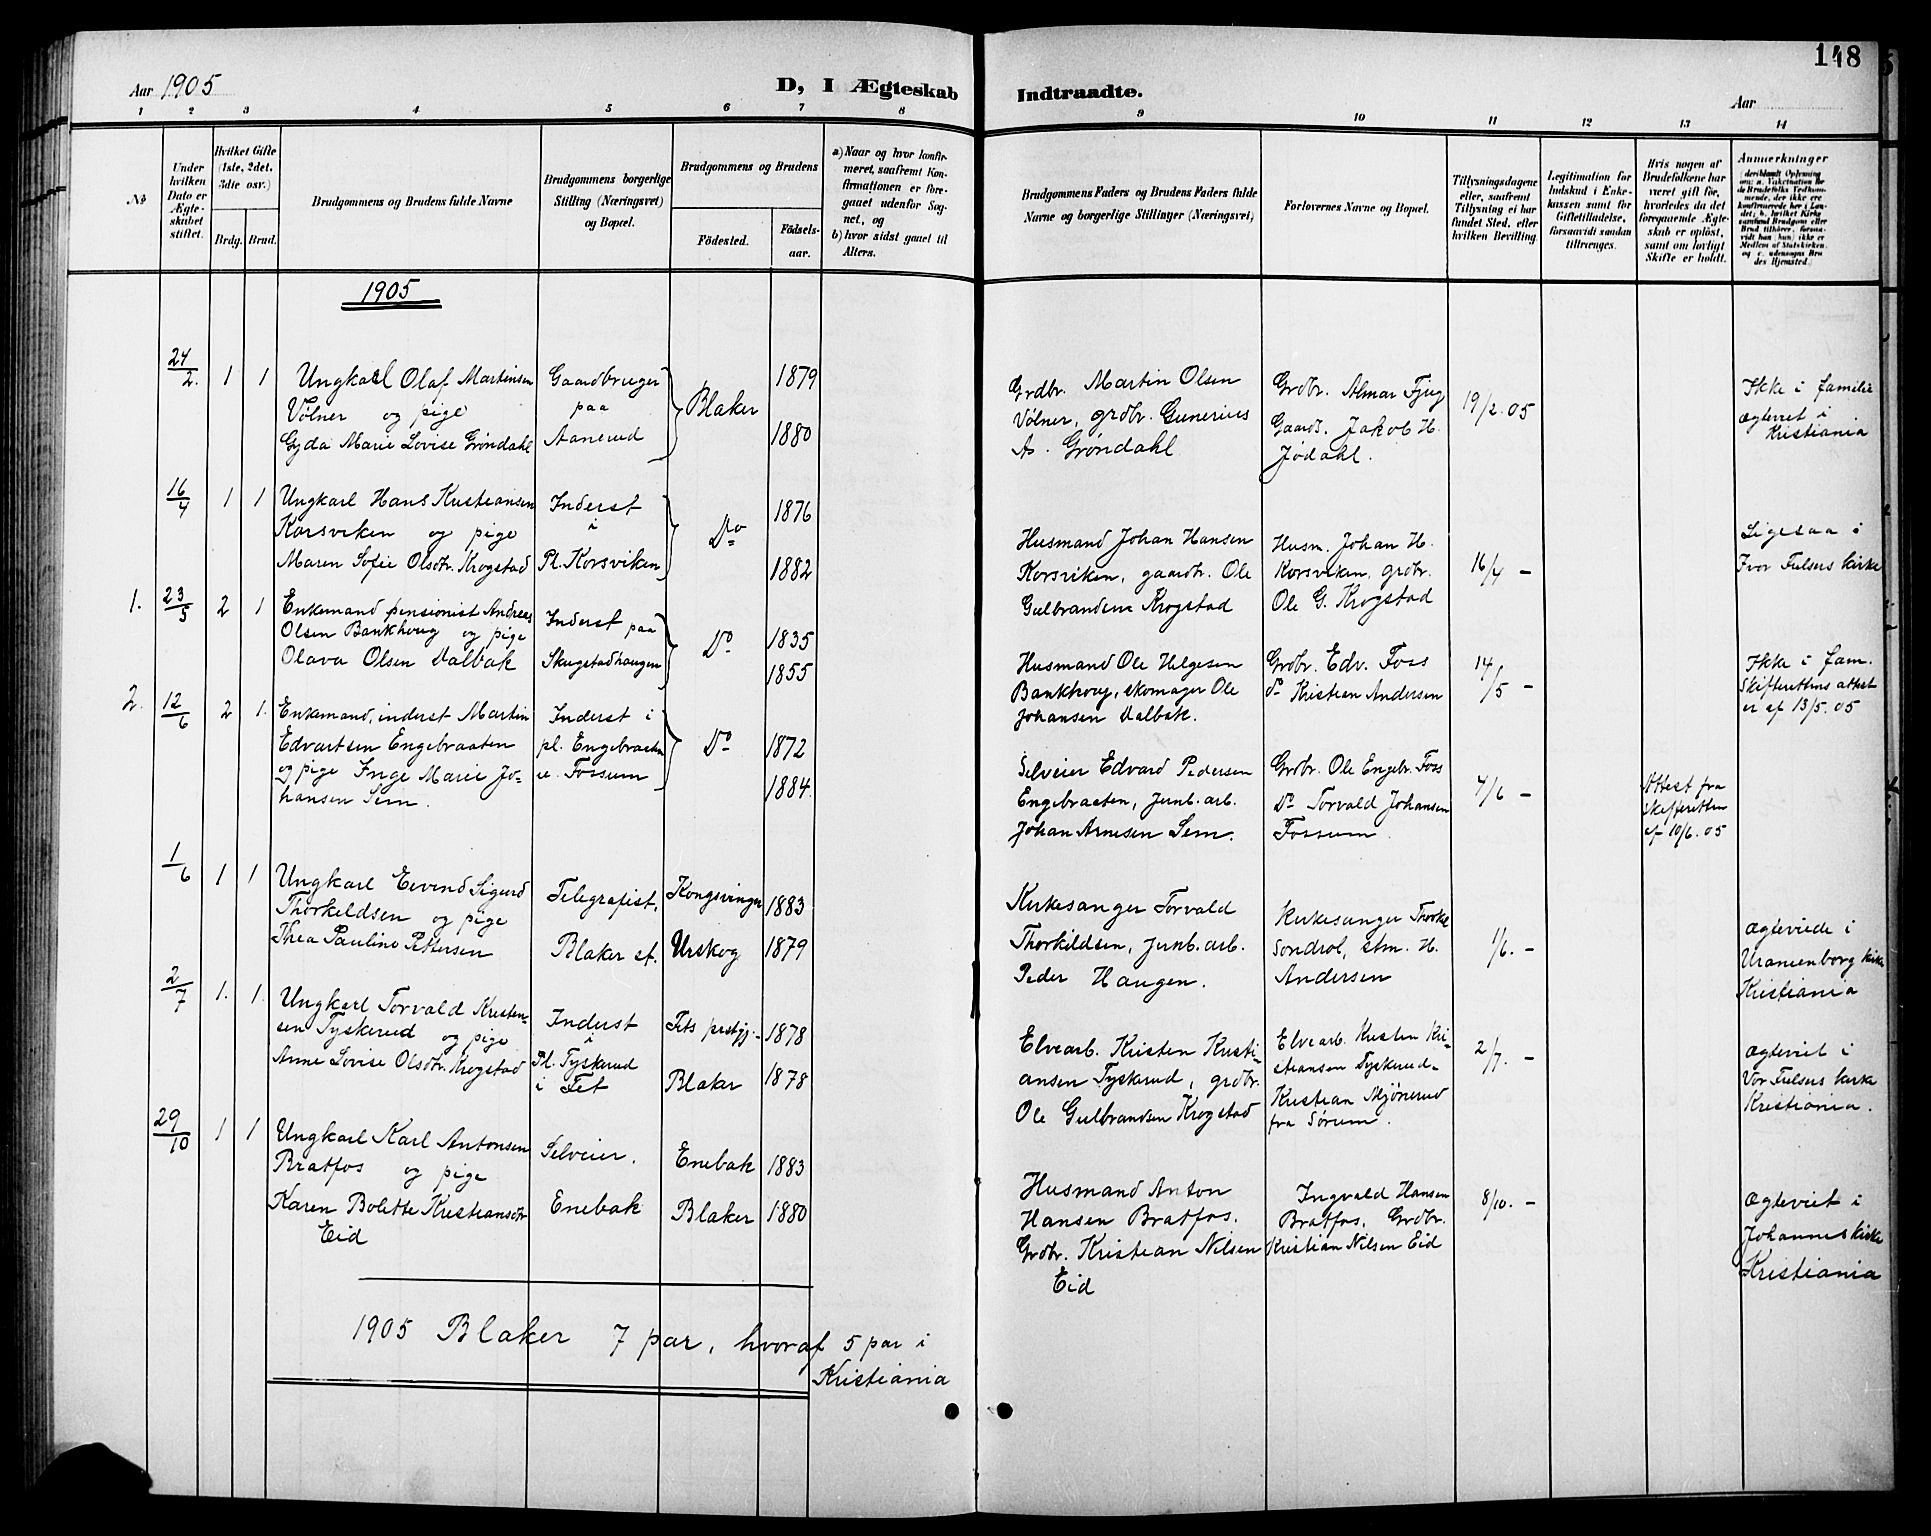 Aar 1905
D, I Ægteskab
Indtraadte.
Aar
148
1 2 3 4 5 6 7 8
9 10 11 12 13 14
No
Under
hvilken
Dato er
Ægte-
skabet
stiftet.
Hvilket Gifte
(1ste, 2det,
3die osv.)
Brdg. Brud.
Brudgommens og Brudens fulde Navne
Brudgommens borgerlige
Stilling (Næringsvei)
og Bopæl.
Brudgommens og Brudens
Fødested.
Fødsels-
aar.
a) Naar og hvor konfir-
meret, saafremt Kon-
firmationen er fore-
gaaet udenfor Sog-
net, og
b) hvor sidst gaaet til
Alters.
Brudgommens Faders og Brudens Faders fulde
Navne og borgerlige Stillinger (Næringsvei)
Forlovernes Navne og Bopæl.
Tillysningsdagene
eller, saafremt
Tillysning ei har
fundet Sted, efter
hvilken Bevilling.
Legitimation for
Indskud i Enke-
kassen samt for
Giftetilladelse,
forsaavidt saadan
tiltrænges.
Hvis nogen af
Brudefolkene har
været gift før,
hvorledes da det
foregaaende Ægte-
skab er opløst,
samt om lovligt
Skifte er holdt.
Anmærkninger
(deriblandt Oplysning
om: a. Vakcination for
de Brudefolks Vedkom-
mende, der ikke ere
konfirmerede her i Lan-
det; b. hvilket Kirke-
samfund Brudgom eller
Brud tilhører, forsaa-
vidt han (hun) ikke er
Medlem af Statskirken,
og c. udensogns Bru-
des Hjemsted.)
1905
24/2. 1 1
Ungkarl Olaf Martinsen
Vølner og pige
Gyda Marie Lovise Grøndahl
Gaardbruger
paa
Aanerud
Blaker
1879
1880
Grdbr. Martin Olsen
Vølner, grdbr. Gunerius
A. Grøndahl
Grdbr. Almar Fjug
Gaardb. Jakob H.
Jødahl.
19/2.05
Ikke i familie
ægteviet i
Kristiania
16/4 1 1
Ungkarl Hans Kristiansen
Korsviken og pige
Maren Sofie Olsdtr. Krogstad
Inderst
i
Pl. Korsviken
Do
1876
1882
Husmand Johan Hansen
Korsviken, gaardbr. Ole
Gulbrandsen Krogstad
Husm. Johan H.
Korsviken, grdbr.
Ole G. Krogstad
16/4 -
Ligesaa i
Vor Frelsers kirke
1. 23/5 2 1
Enkemand pensionist Andreas
Olsen Bankhoug og pige
Olava Olsen Dalbak
Inderst paa
Skugstadhaugen
Do
1835
1855
Husmand Ole Helgesen
Bankhoug, skomager Ole
Johansen Dalbak.
Grdbr. Edv. Foss
do Kristian Andersen
14/5 -
Ikke i fam.
Skifterettens attest
er af 13/5.05
2. 12/6 2 1.
Enkemand, inderst Martin
Edvartsen Engebraaten
og pige Inge Marie Jo-
hansen Sem.
Inderst i
pl. Engebraaten
u. Fossum
Do
1872
1884.
Selveier Edvard Pedersen
Engebraaten, jernb. arb.
Johan Arnesen Sem.
Grdbr. Ole Engebr. Foss
Do Torvald Johansen
Fossum.
4/6 -
Attest fra
Skifteretten
af 10/6.05
1/6 1 1
Ungkarl Eivind Sigurd
Thorkildsen og pige
Thea Pauline Pettersen
Telegrafist.
Blaker st.
Kongsvinger
Urskog
1883
1879
Kirkesanger Torvald
Thorkildsen, jernb. arb.
Peder Haugen.
Kirkesanger Thorkel
Sondrol, stm. H.
Andersen
1/6. -
Ægteviede i
Uranienborg kirke
Kristiania
2/7 1. 1.
Ungkarl Torvald Kristen-
sen Tyskerud og pige
Anne Lovise Olsdtr. Krogstad
Inderst
i
Pl. Tyskerud
i Fet
Fets prstgj.
Blaker
1878
1878
Elvearb. Kristen Kristi-
ansen Tyskerud, grdbr.
Ole Gulbrandsen Krogstad
Elvearb. Kristen Kri-
stiansen Tyskerud-
Kristian Mjønerud
fra Sørum.
2/7. -
Ægteviet i
Vor Frelsers kirke
Kristiania.
29/10 1 1
Ungkarl Karl Antonsen
Bratfos og pige
Karen Bolette Kristiansdtr
Eid
Selveier.
Enebak
Enebak
Blaker
1883
1880
Husmand Anton
Hansen Bratfos.
Grdbr. Kristian Nilsen
Eid
Ingvald Hansen
Bratfos. Grdbr.
Kristian Nilsen Eid
8/10. -
Ægteviet i
Johannes kirke
Kristiania
1905 Blaker 7 par, hvoraf 5 par i
Kristiania